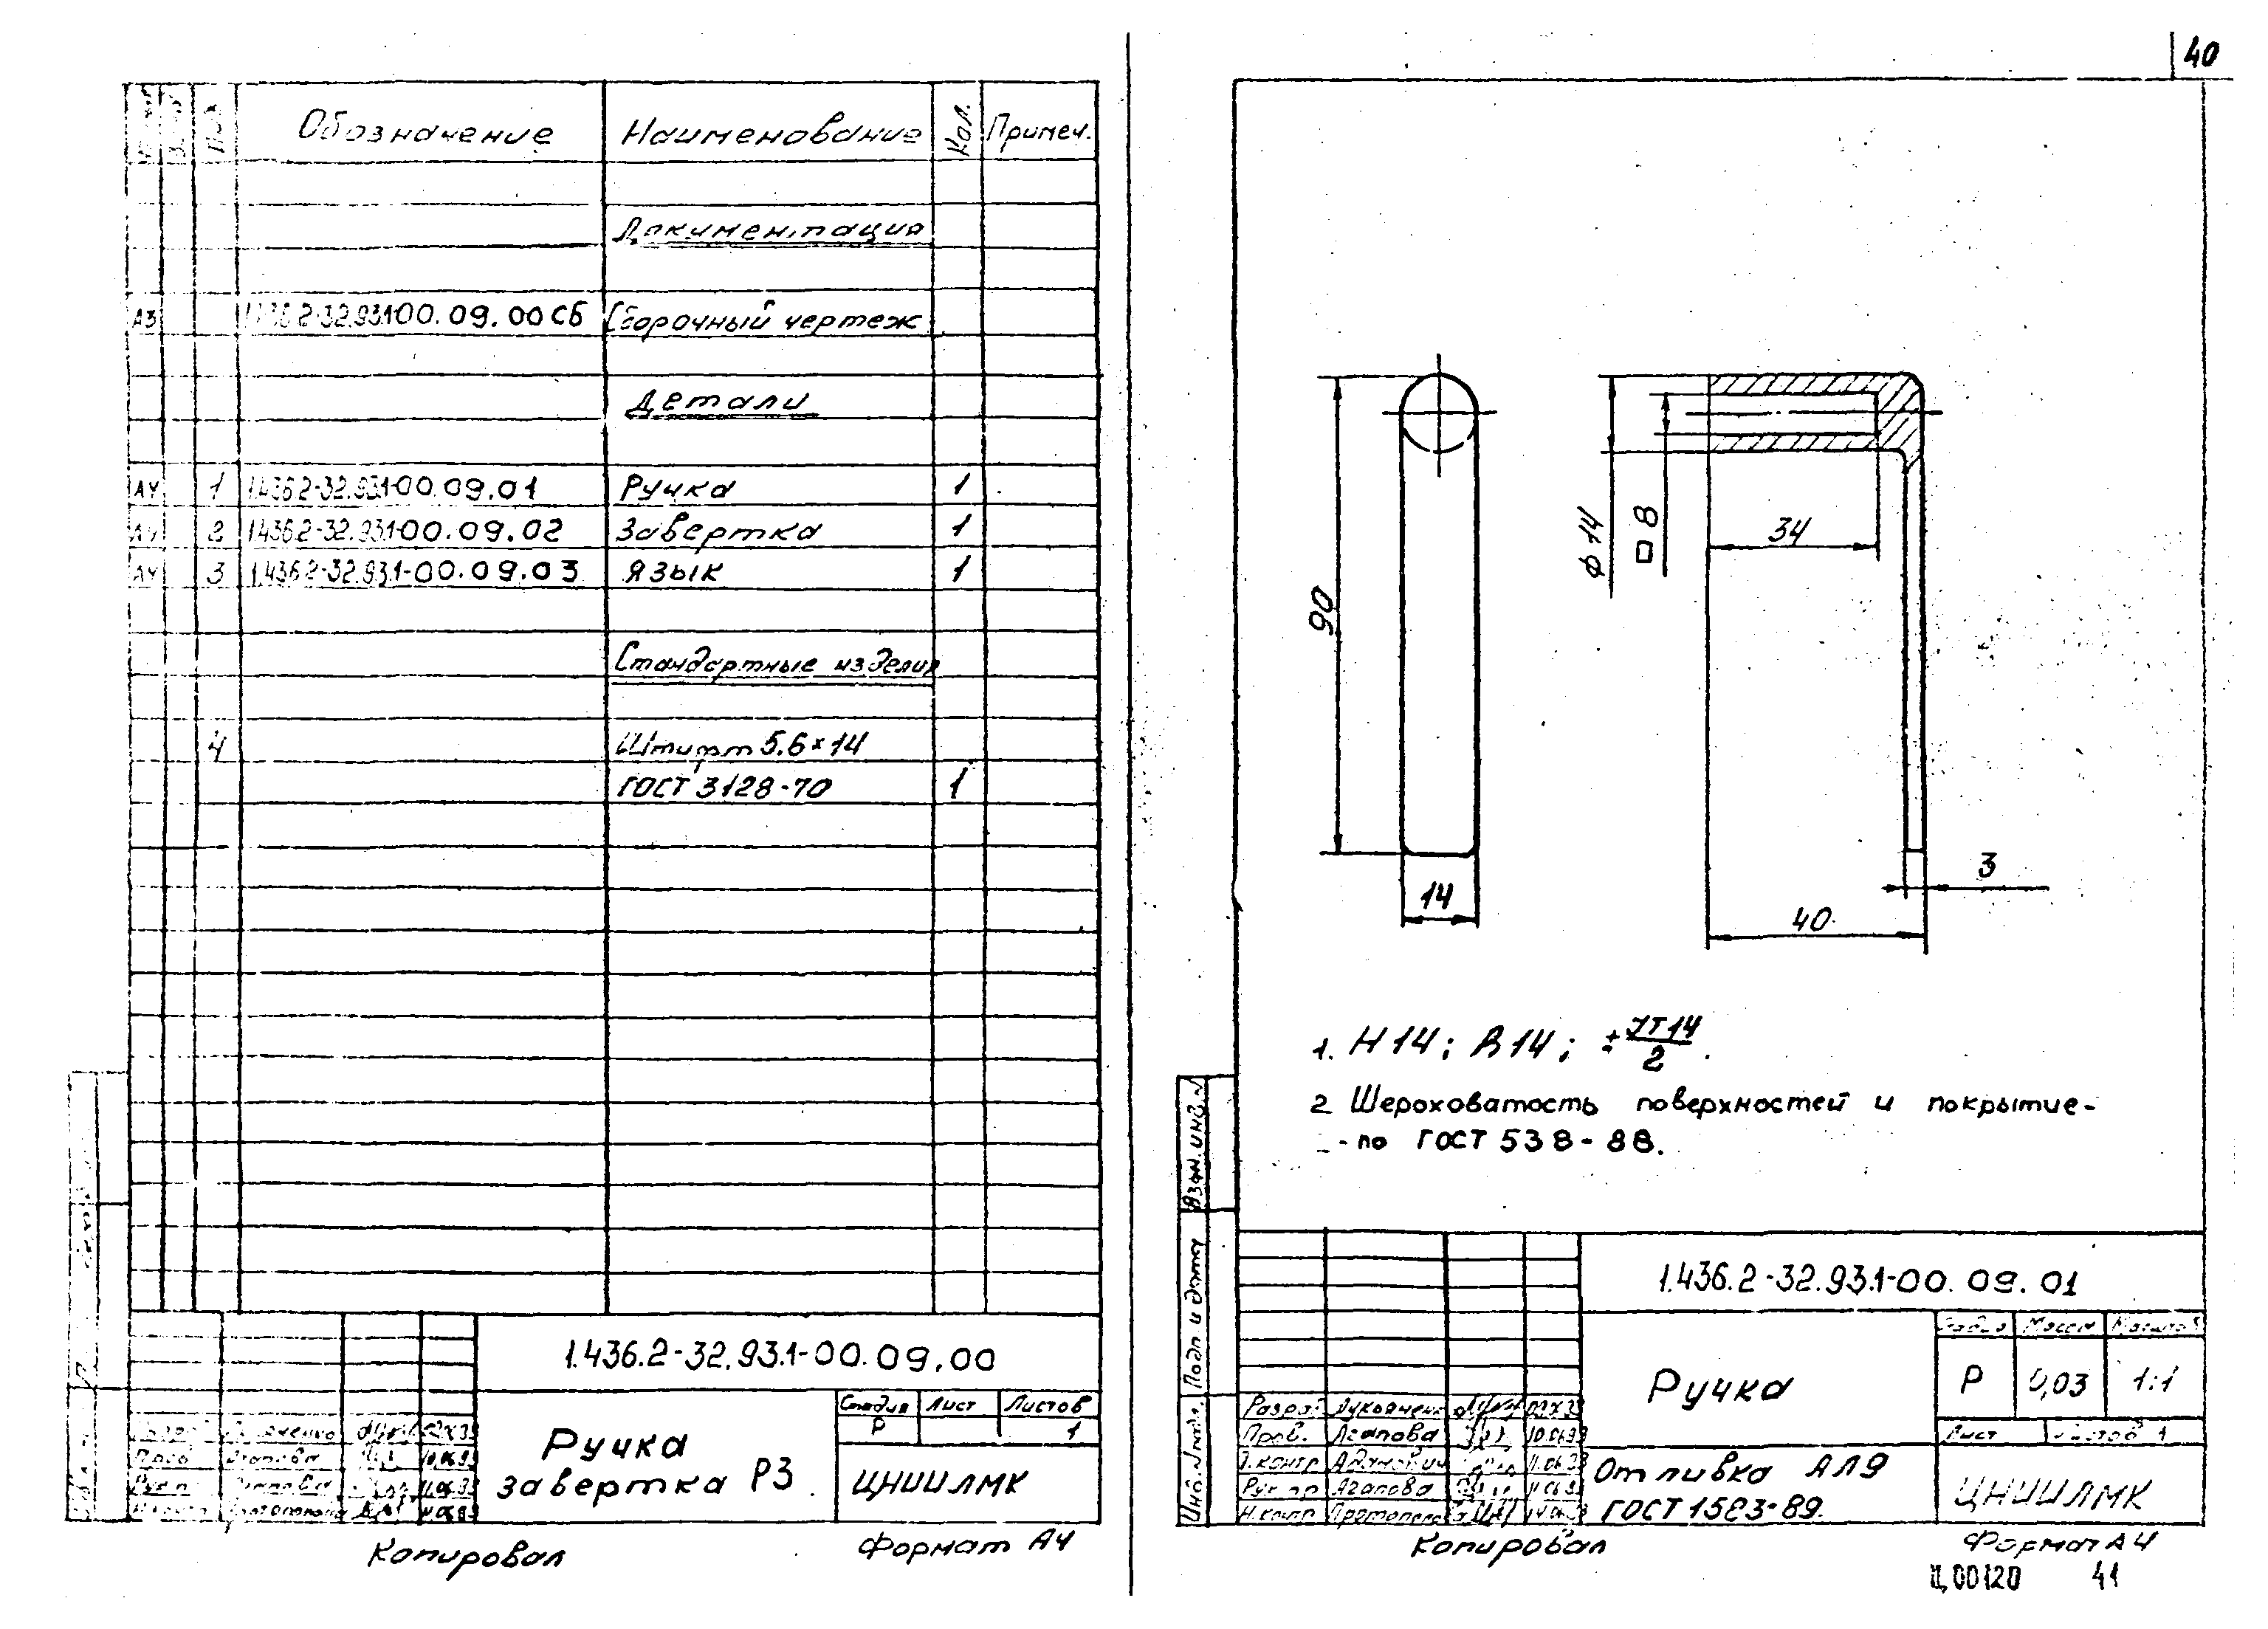 40
Обозначение Наименование Кол. Примеч.
Документация
А3 1.436.2-32.93.1-00.09.00 СБ Сборочный чертеж
Детали
А4 1 1.436.2-32.93.1-00.09.01 Ручка 1
А4 2 1.436.2-32.93.1-00.09.02 Завертка 1
А4 3 1.436.2-32.93.1-00.09.03 Язык 1
Стандартные изделия
4 Штифт 5.6×14
ГОСТ 3128-70 1
1.436.2-32.93.1-00.09.00
Ручка
завертка Р3
Стадия Лист Листов
Р 1
ЦНИИЛМК
Копировал Формат А4
90
14
ϕ14
□8
34
3
40
1. H14; B14; ±JT14/2.
2 Шероховатость поверхностей и покрытие-
- по ГОСТ 538-88.
Взам. инв. №
Подп и дату
Инв. № подл.
1.436.2-32.93.1-00.09.01
Ручка
Стадия Масса Масштаб
Р 0,03 1:1
Лист Листов 1
Разраб
Пров. Агапова 10.06.93
Т.контр Адамович 11.06.93
Рук. гр Агапова 11.06.93
Н.контр
Отливка АЛ9
ГОСТ 1583-89.
ЦНИИЛМК
Копировал Формат А4
Ц00120 41